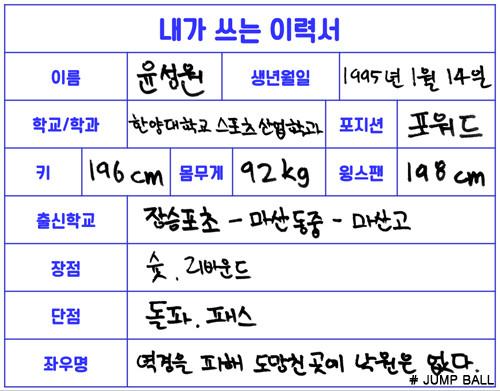 내가 쓰는 이력서
이름 윤성원 생년월일 1995년 1월 14일
학교/학과 한양대학교 스포츠산업학과 포지션 포워드
키 196cm 몸무게 92kg 윙스팬 198cm
출신학교 장승포초 - 마산동중 - 마산고
장점 슛, 리바운드
단점 돌파, 패스
좌우명 역경을 피해 도망친곳에 낙원은 없다.
# JUMP BALL